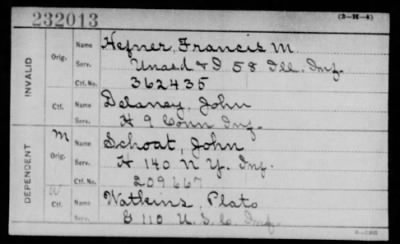 232013
(3-H-4)
INVALID
Orig. Name Hefner, Francis M.
Serv. Unas'd & D. 58 Ill. Inf.
Ctf. No. 362435
Ctf. Name Delaney, John
Serv. H 9 Conn Inf.
DEPENDENT
M Orig. Name Schoat, John
Serv. H 140 N.Y. Inf.
Ctf. No. 209667
W Ctf. Name Watkins, Plato
Serv. G 110 U.S.C. Inf.